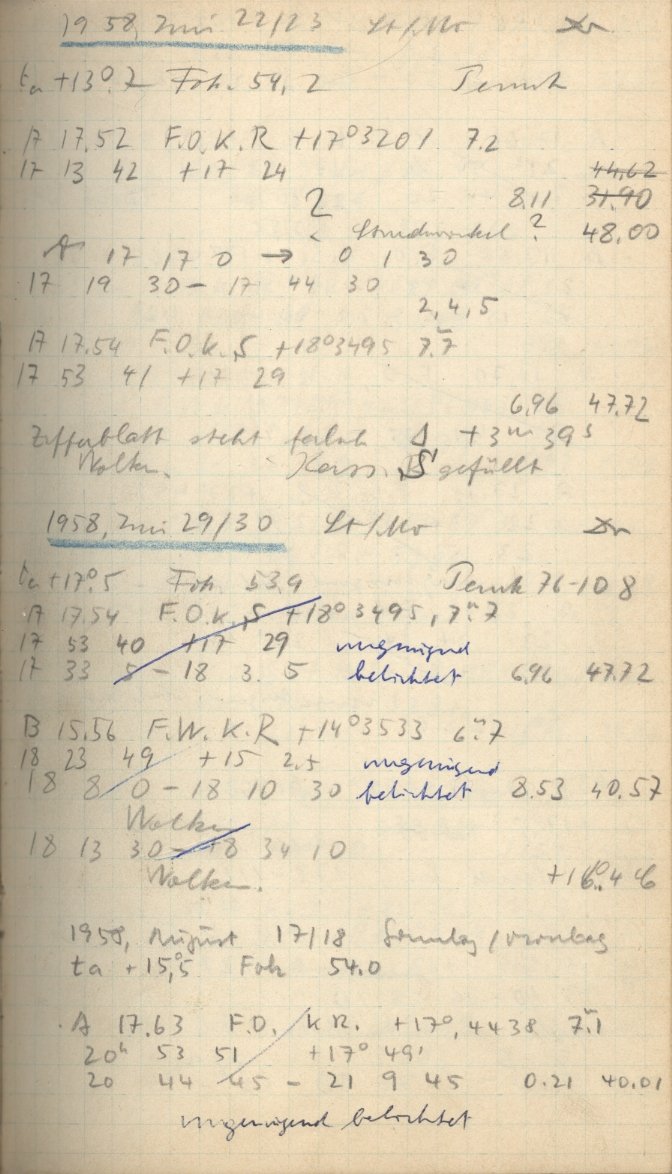 1958, Juni 22/23 St/Mo
ta +13°.7 Fok. 54,2
A 17.52 F.O.K.R +17°3201 7.2
17 13 42 +17 24
44,62
2 8.11 31.90
Stundwinkel ? 48,00
A 17 17 0 → 0 1 30
17 19 30 - 17 44 30
2,4,5
A 17.54 F.O.K.S +18°3495 7.m7
17 53 41 +17 29
6,96 47.72
Zifferblatt steht falsch Δ +3m 39s
Wolken. Kass. S gefüllt
1958, Juni 29/30 St/Mo
ta +17°.5 Fok. 53.9 76-108
A 17.54 F.O.K.S +18°3495, 7m.7
17 53 40 +17 29 ungenügend
17 33 5 - 18 3. 5 belichtet 6,96 47.72
B 15.56 F.W.K.R +14°3533 6m.7
18 23 49 +15 2.5 ungenügend
18 8 0 - 18 10 30 belichtet 8.53 40.57
Wolken
18 13 30 - 18 34 10
Wolken.
1958, August 17/18 Sonntag/Montag
ta +15,°5 Fok 54.0
A 17.63 F.O. K R. +17°, 4438 7m.1
20h 53 51 +17° 49'
20 44 45 - 21 9 45 0.21 40.01
ungenügend belichtet